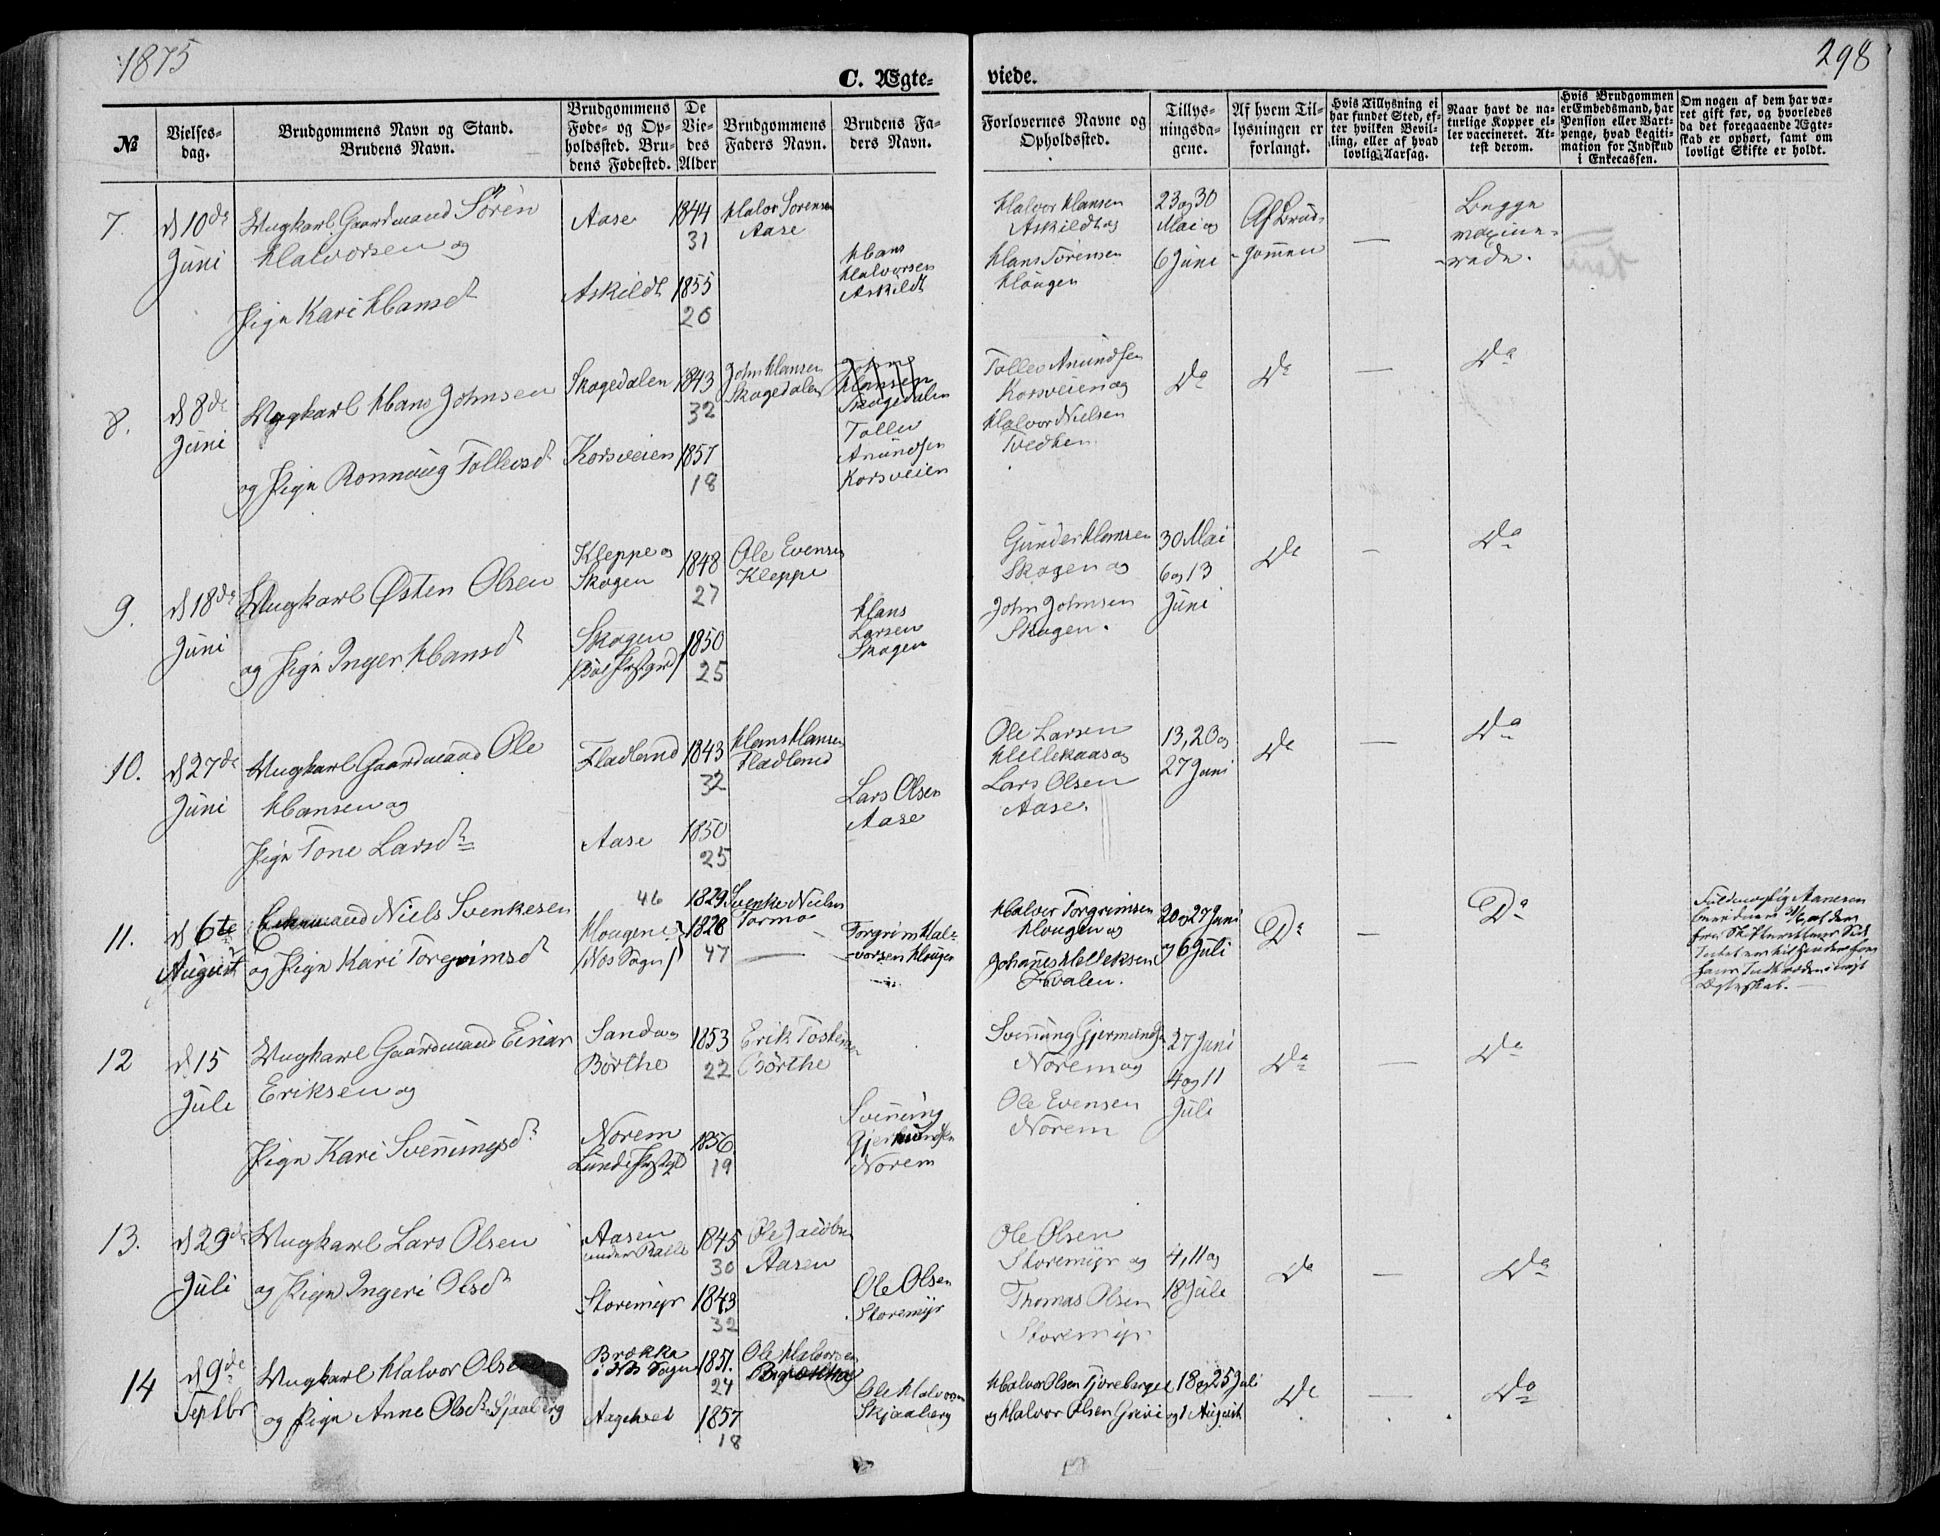 1875
298
C. Ægte-
viede.
№
Vielses-
dag.
Brudgommens Navn og Stand.
Brudens Navn.
Brudgommens
Føde- og Op-
holdssted. Bru-
dens Fødested.
De
Vie-
des
Alder
Brudgommens
Faders Navn.
Brudens Fa-
ders Navn.
Forlovernes Navne og
Opholdssted.
Tillys-
ningsda-
gene.
Af hvem Til-
lysningen er
forlangt.
Hvis Tillysning ei
har fundet Sted, ef-
ter hvilken Bevil-
ling, eller af hvad
lovlig Aarsag.
Naar havt de na-
turlige Kopper el-
ler vaccineret. At-
test derom.
Hvis Brudgommen
er Embedsmand, har
Pension eller Vart-
penge, hvad Legiti-
mation for Indskud
i Enkecassen.
Om nogen af dem har væ-
ret gift før, og hvorledes
da det foregaaende Ægte-
skab er ophørt, samt om
lovligt Skifte er holdt.
7.
d 10de
Juni
Ungkarl Gaardmand Søren
Halvorsen og
Pige Kari Hansd
Aase
Askildt
1844
31
1855
20
Halvor Sørensen
Aase
Hans
Halvorsen
Askildt
Halvor Hansen
Askildt og
Hans Sørensen
Haugen
23 og 30
Mai og
6 Juni
Af Brud-
gommen
—
Begge
vaxine-
rede.
8.
d 8de
Juni
Ungkarl Hans Johnsen
og Pige Ronnaug Tollevsd
Skogedalen
Korsveien
1843
32
1857
18
John Hansen
Skogedalen
John
Hansen
Skogedalen
Tollev
Anundsen
Korsveien
Tollev Anundsen
Korsveien og
Halvor Nielsen
Tvedten
Do
Do
—
Do
9.
d 18de
Juni
Ungkarl Østen Olsen
og Pige Inger Hansd
Kleppe og
Skogen
Skogen
/Bøe Prstgjeld/
1848
27
1850
25
Ole Evensen
Kleppe
Hans
Larsen
Skogen
Gunder Hansen
Skogen og
John Johnsen
Skogen.
30 Mai
6 og 13
Juni
Do
—
Do
10.
d 27de
Juni
Ungkarl Gaardmand Ole
Hansen og
Pige Tone Larsd
Fladland
Aase
1843
32
1850
25
Hans Hansen
Fladland
Lars Olsen
Aase
Ole Larsen
Hellekaas og
Lars Olsen
Aase.
13, 20 og
27 Juni
Do
—
Do
11.
d 6te
August
Enkemand Niels Svenkesen
og Pige Kari Torgrimsd
46
Haugene
/Næs Sogn/
1829
1828
47
Svenke Nielsen
Tormo
—
Torgrim Hal-
vorsen Haugen
Halvor Torgrimsen
Haugen og
Johanes Helleksen
Hvalen.
20 og 27 Juni
og 6 Juli
Do
—
Do
Ægteskab.
12
d 15
Juli
Ungkarl Gaardmand Einar
Eriksen og
Pige Kari Svenungsd
Sanda og
Børthe
Norem
Lunde Prstgjd
1853
22
1856
19
Erik Tostensen
Børthe
Svenung
Gjermundsen
Norem
Svenung Gjermundsen
Norem og
Ole Evensen
Norem
27 Juni
4 og 11
Juli
Do
—
Do
13.
d 29de
Juli
Ungkarl Lars Olsen
og Pige Ingeri Olsd
Aasen
under Kalle
Storemyr
1845
30
1843
32
Ole Jacobsen
Aasen
Ole Olsen
Storemyr
Ole Olsen
Storemyr og
Thomas Olsen
Storemyr.
4, 11 og
18 Juli
Do
—
Do
14
d 9de
Septbr
Ungkarl Halvor Olsen
og Pige Anne Olsd Skjaaberg
Brækka
i Næs Sogn
Aagetvet
1851.
24
1857
18
Ole Halvorsen
Brækka
Ole Halvorsen
Skjaaberg
Halvor Olsen
og Halvor Olsen Grave
18 og 25 Juli
og 1 August
Do
—
Do